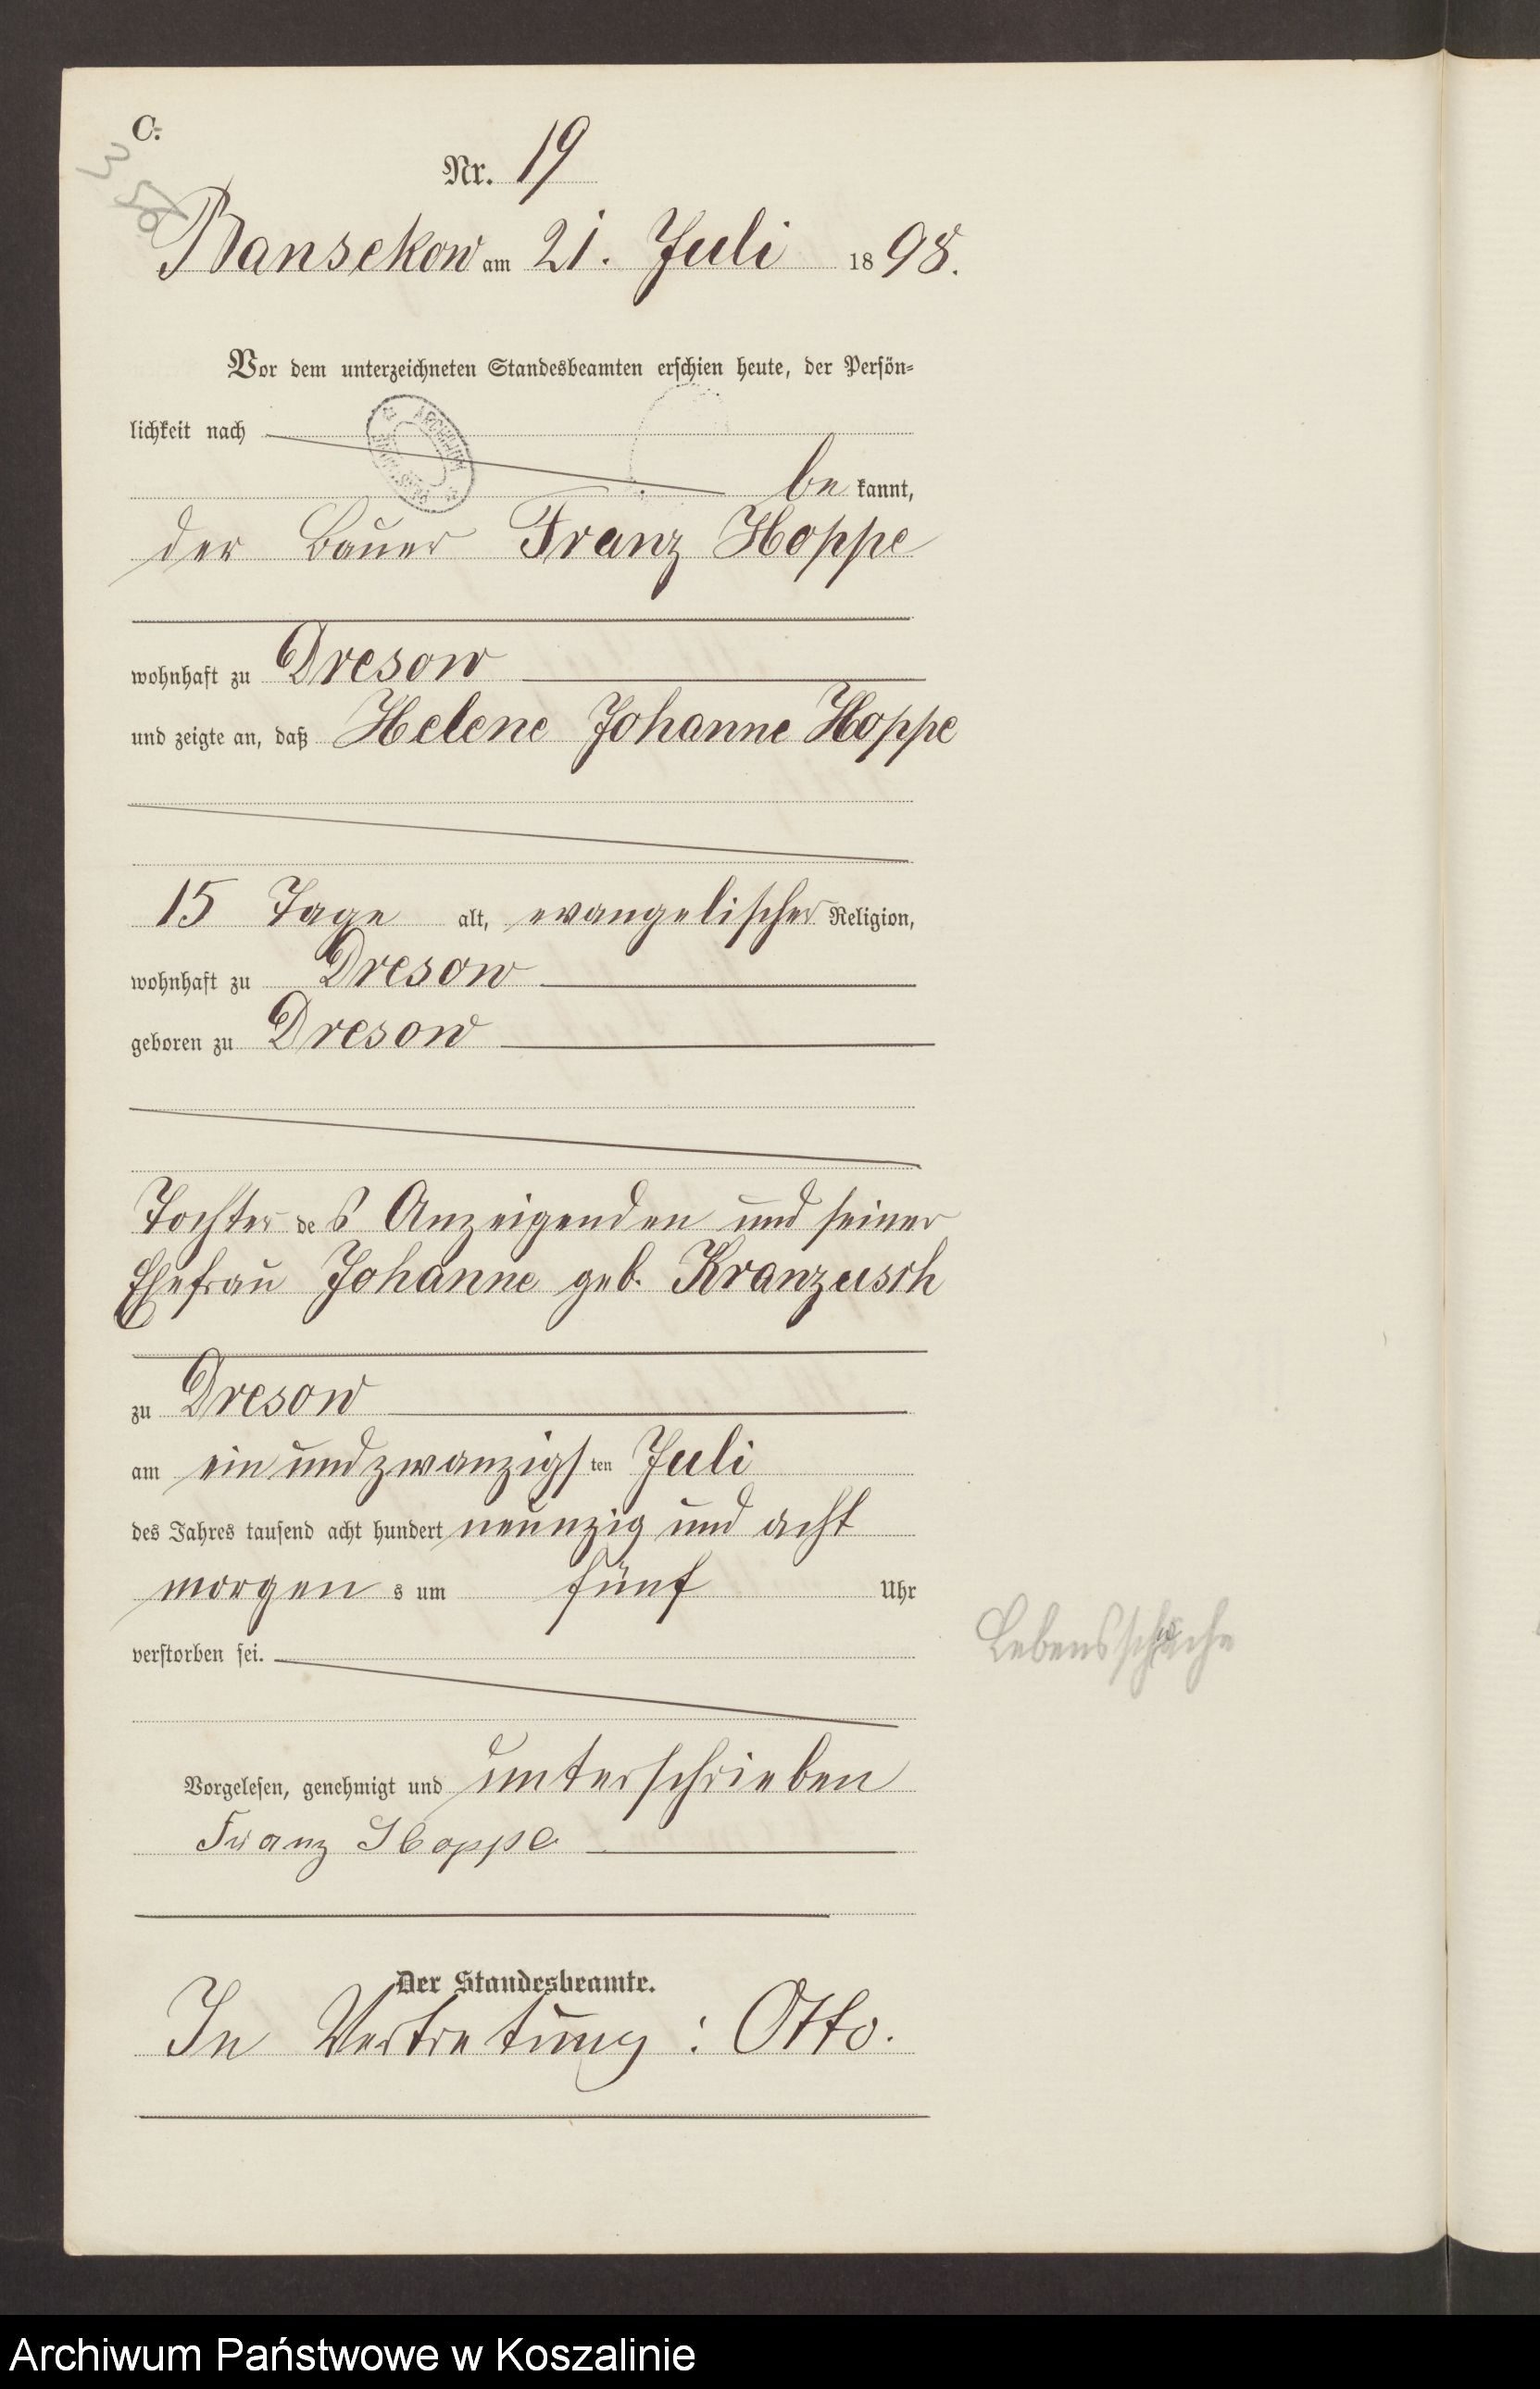 C.
Nr. 19
Bansekow am 21. Juli 1898.
Vor dem unterzeichneten Standesbeamten erschien heute, der Persön=
lichkeit nach
be kannt,
der Bauer Franz Hoppe
wohnhaft zu Dresow
und zeigte an, daß Helene Johanne Hoppe
15 Tage alt, evangelischer Religion,
wohnhaft zu Dresow
geboren zu Dresow
Tochter des Anzeigenden und seiner
Ehefrau Johanne geb. Kranzusch
zu Dresow
am ein und zwanzigsten Juli
des Jahres tausend acht hundert neunzig und acht
morgen s um fünf Uhr
verstorben sei.
Lebensschwäche
Vorgelesen, genehmigt und unterschrieben
Franz Hoppe
Der Standesbeamte.
In Vertretung: Otto.
Archiwum Państwowe w Koszalinie